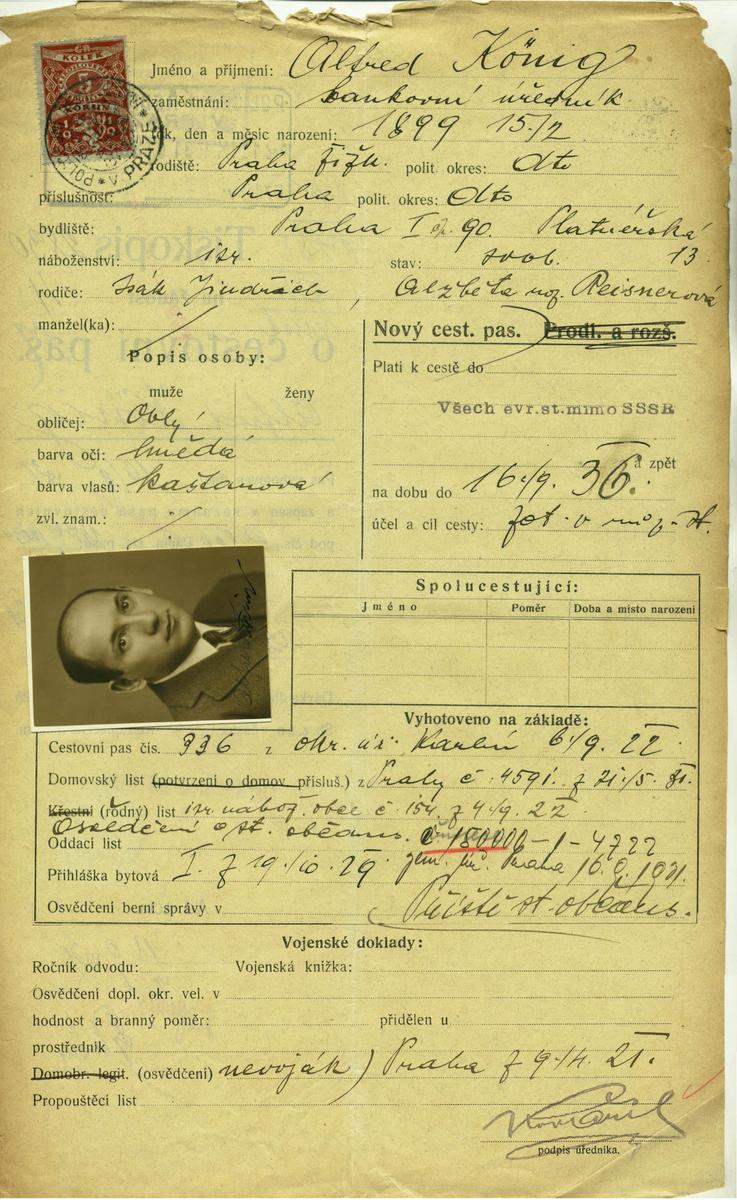 Jméno a přijmení: Alfred König
zaměstnání: bankovní úředník
rok, den a měsíc narození: 1899 15./2
rodiště: Praha Žižk. polit. okres: dto
příslušnost: Praha polit. okres: dto
bydliště: Praha I čp. 90. Platnéřská
náboženství: izr. stav: svob. 13
rodiče: Isák Jindřich, Alžběta roz. Reisnerová
manžel(ka):
Nový cest. pas. Prodl. a rozš.
Popis osoby:
Platí k cestě do
muže ženy
Všech evr.st.mimo SSSR
obličej: Oblý
barva očí: hnědá
a zpět
barva vlasů: kaštanová
na dobu do 16./9. 36.
zvl. znam.:
účel a cíl cesty:
Spolucestující:
Jméno Poměr Doba a místo narození
Vyhotoveno na základě:
Cestovní pas čis. 336 z okr. úř. Karlín 6./9. 22.
Domovský list (potvrzení o domov. přísluš.) z Prahy č. 4591. z 21./5.
Křestní (rodný) list izr. nábož. obce č. 154 z 4./9. 22.
Osvědčení o st. občans. č 180000-1-4722
Oddací list
Přihláška bytová I. z 19./10. 29. Praha
Osvědčení berní správy v Příště st. občans.
Vojenské doklady:
Ročník odvodu: Vojenská knižka:
Osvědčení dopl. okr. vel. v
hodnost a branný poměr: přidělen u
prostředník
Domobr. legit. (osvědčení) nevoják) Praha z 9./4. 21.
Propouštěcí list
podpis úředníka.
KOLEK
PRAZE